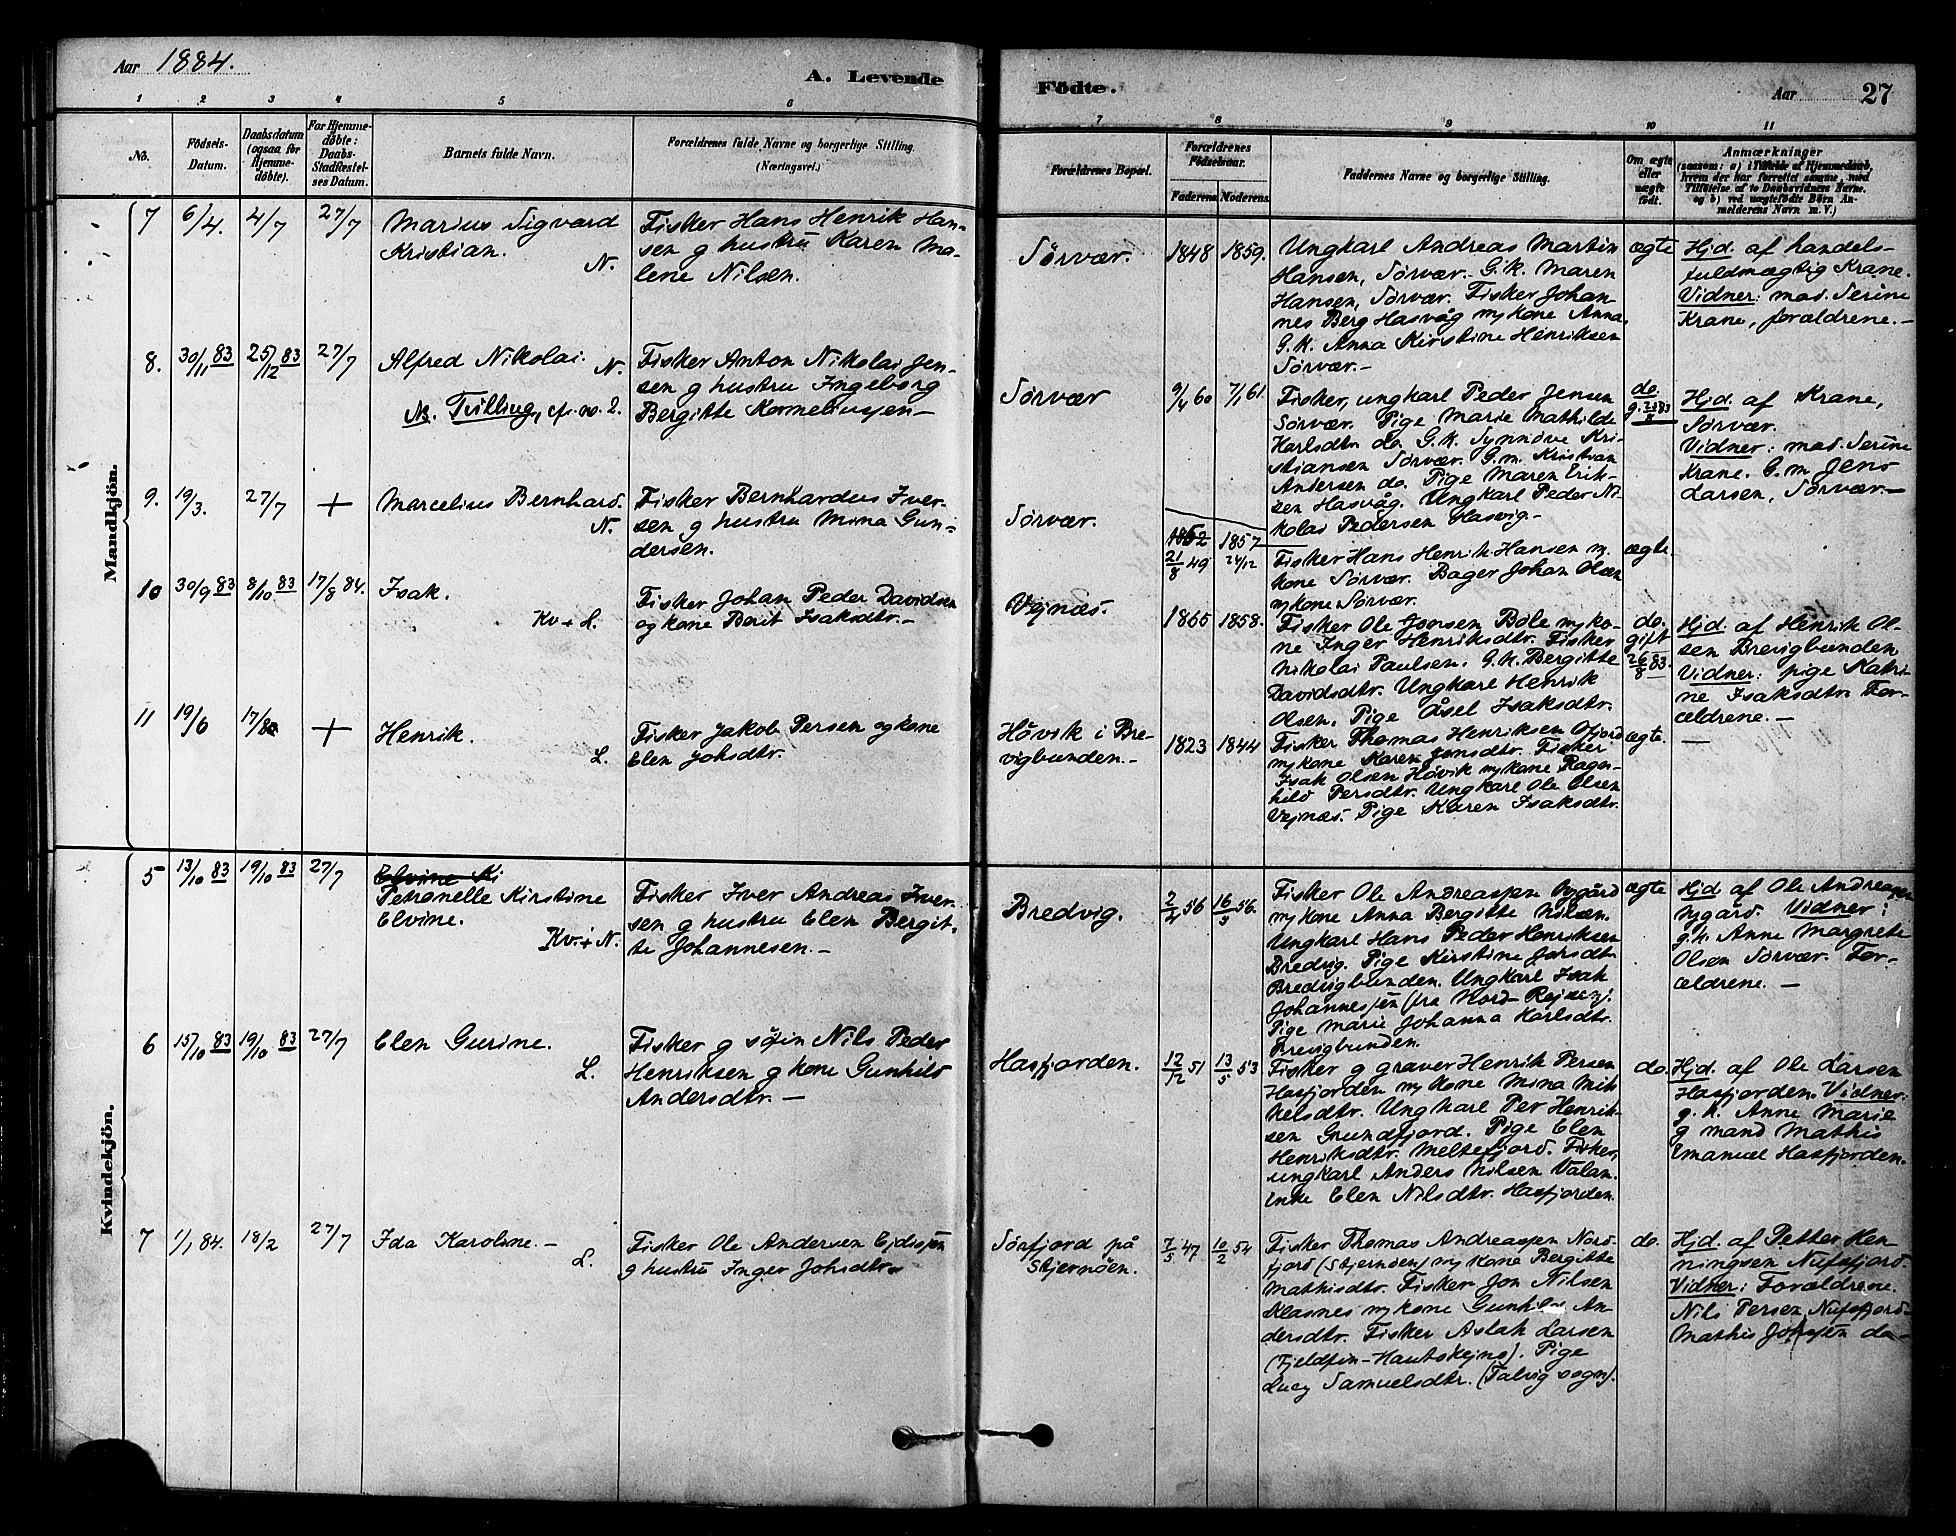 Aar 1884.
A. Levende
Födte.
Aar 27
1 2 3 4 5 6 7 8 9 10 11
No.
Födsels-
Datum.
Daabsdatum
(ogsaa for
Hjemme-
döbte).
For Hjemme-
döbte:
Daabs-
Stadfæstel-
ses Datum.
Barnets fulde Navn.
Forældrenes fulde Navne og borgerlige Stilling.
(Næringsvei.)
Forældrenes Bopæl.
Forældrenes
Födselsaar.
Faderens. Moderens.
Faddernes Navne og borgerlige Stilling.
Om ægte
eller
uægte
født.
Anmærkninger
(saasom: a) i Tilfælde af Hjemmedaab,
hvem der har forrettet samme, med
Tilföielse af to Daabsvidners Navne.
og b) ved uægtefödte Börn An-
melderens Navn m. V.)
Mandkjön.
7 6/4. 4/7 27/7
Marius Sigvard
Kristian.
N.
Fisker Hans Henrik Han-
sen g hustru Karen Ma-
lene Nilsen.
Sørvær.
1848 1859.
Ungkarl Andreas Martin
Hansen, Sørvær. G.k. Maren
Hansen, Sørvær. Fisker Johan-
nes Berg Hasvåg m/kone Anna.
G.k. Anna Kirstine Henriksen
Sørvær.-
ægte
Hjd. af handels-
fuldmægtig Krane.
Vidner: mad. Serine
Krane, forældrene.-
8. 30/11 83 25/12 83 27/7
Alfred Nikolai.
N.
NB. Tvilling, cfr. no. 2.
Fisker Anton Nikolai Jen-
sen g hustru Ingeborg
Bergitte Korneliussen-
Sørvær
9/4 60 7/1 61
Fisker, ungkarl Peder Jensen
Sørvær. Pige Marie Mathilde
Karlsdtr do. G.k. Synnöve Kri-
stiansen Sørvær. G.m. Kristian
Andersen do. Pige Maren Erik-
sen Hasvåg. Ungkarl Peder Ni-
kolai Pedersen Hasvig.-
do.
g. 83
Hjd. af Krane,
Sørvær.
Vidner: mad. Serine
Krane. G.m. Jens
Larsen, Sørvær.-
9. 19/3. 27/7 +
Marcelius Bernhard.
N.
Fisker Bernhardus Iver-
sen g hustru Mina Gun-
dersen.
Sørvær.
1857
21/8 49 24/12
Fisker Hans Henrik Hansen m.
kone Sørvær. Bager Johan Olsen
m/kone Sørvær.
ægte.
10 30/9 83 8/10 83 17/8 84.
Isak.
Kv + L.
Fisker Johan Peder Davidsen
og kone Berit Isaksdtr.-
Vejnæs.
1865 1858.
Fisker Ole Jonsen Bole m/ko-
ne Inger Henriksdtr. Fisker
Nikolai Paulsen. G.k. Bergitte
Davidsdtr. Ungkarl Henrik
Olsen. Pige Åsel Isaksdtr.
do.
gift
26/8 83.
Hjd. af Henrik Ol-
sen Brevigbunden
Vidner: pige Katri-
ne Isaksdtr. For-
ældrene.-
11 19/6 17/8 +
Henrik.
L.
Fisker Jakob Persen og kone
Elen Johsdtr.
Håvik i Bre-
vigbunden.-
1823 1844
Fisker Thomas Henriksen Ofjord
m/kone Karen Jonsdtr. Fisker
Isak Olsen Håvik m/kone Ragn-
hild Persdtr. Ungkarl Ole Olsen
Vejnæs. Pige Karen Isaksdtr.
ægte.
-
Kvindekjön.
5 13/10 83 19/10 83 27/7
Elvine Ki
Petronelle Kirstine
Elvine.
Kv. + N.
Fisker Iver Andreas Iver-
sen g hustru Elen Bergit-
te Johannesen.-
Bredvig.
2/4 56 16/5 56.
Fisker Ole Andreassen Nygård
m/kone Anna Bergitte Nilsen.
Ungkarl Hans Peder Henriksen
Bredvig. Pige Kirstine Johsdtr.
Bredvigbunden. Ungkarl Isak
Johannessen (fra Nord-Rejsen).
Pige Marie Johanna Karlsdtr.
Brevigbunden.
ægte
Hjd af Ole Andreassen
Nygård. Vidner:
g.k. Anne Margrete
Olsen Sørvær. For-
ældrene.-
6 15/10 83 19/10 83 27/7
Elen Gurine.
L.
Fisker g søfin Nils Peder
Henriksen g kone Gunhild
Andersdtr.-
Hasfjorden.
12/12 51 13/5 53
Fisker g graver Henrik Persen
Hasfjorden m/kone Mina Mik-
kelsdtr. Ungkarl Per Henrik-
sen Grundfjord. Pige Elen
Henriksdtr. Meltefjord. Fisker,
ungkarl Anders Nilsen Valan.
Enke Elen Nilsdtr. Hasfjorden.
do.
Hjd. af Ole Larsen
Hasfjorden. Vidner:
g.k. Anne Marie
g mand Mathis
Emanuel Hasfjorden.
7 1/1 84. 18/2 27/7
Ida Karoline.-
L.
Fisker Ole Andersen
g hustru Inger Johsdtr.-
Sørfjord på
Stjernöen.
7/5 47 10/2 54
Fisker Thomas Andreassen Nord-
fjord (Stjernöen) m/kone Bergitte
Mathisdtr. Fisker Jon Nilsen
Klasnes m/kone Gunhild An-
dersdtr. Fisker Aslak Larsen
(Fjeldfin-Kautokejno). Pige
Lucy Samuelsdtr. (Talvig sogn).
do.
Hjd. af Petter Hen-
ningsen Nufsfjord.
Vidner: Forældrene.
Nils Persen Nufsfjord-
Mathis do-